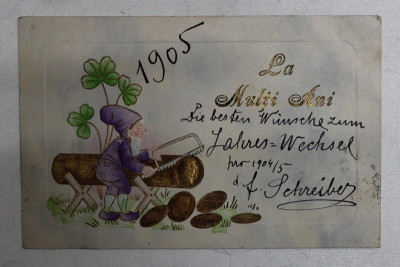 1905
La
Mulți Ani
Die besten Wünsche zum
Jahres=Wechsel
pro 1904/5
d. f. Schreiber